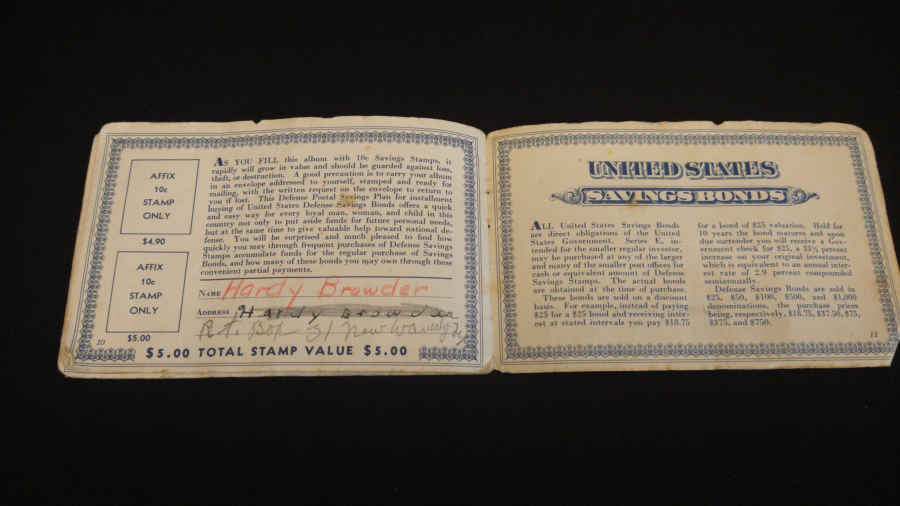 AFFIX
10c
STAMP
ONLY
$4.90
AFFIX
10c
STAMP
ONLY
$5.00
10
AS YOU FILL this album with 10c Savings Stamps, it
rapidly will grow in value and should be guarded against loss,
theft, or destruction. A good precaution is to carry your album
in an envelope addressed to yourself, stamped and ready for
mailing, with the written request on the envelope to return to
you if lost. This Defense Postal Savings Plan for installment
buying of United States Defense Savings Bonds offers a quick
and easy way for every loyal man, woman, and child in this
country not only to put aside funds for future personal needs,
but at the same time to give valuable help toward national de-
fense. You will be surprised and much pleased to find how
quickly you may through frequent purchases of Defense Savings
Stamps accumulate funds for the regular purchase of Savings
Bonds, and how many of these bonds you may own through these
convenient partial payments.
NAME Hardy Browder
ADDRESS Hardy Browder
Rt. Box 31 New Waverly
$5.00 TOTAL STAMP VALUE $5.00
UNITED STATES
SAVINGS BONDS
ALL United States Savings Bonds
are direct obligations of the United
States Government. Series E, in-
tended for the smaller regular investor,
may be purchased at any of the larger
and many of the smaller post offices for
cash or equivalent amount of Defense
Savings Stamps. The actual bonds
are obtained at the time of purchase.
These bonds are sold on a discount
basis. For example, instead of paying
$25 for a $25 bond and receiving inter-
est at stated intervals you pay $18.75
for a bond of $25 valuation. Held for
10 years the bond matures and upon
due surrender you will receive a Gov-
ernment check for $25, a 33⅓ percent
increase on your original investment,
which is equivalent to an annual inter-
est rate of 2.9 percent compounded
semiannually.
Defense Savings Bonds are sold in
$25, $50, $100, $500, and $1,000
denominations, the purchase prices
being, respectively, $18.75, $37.50, $75,
$375, and $750.
11